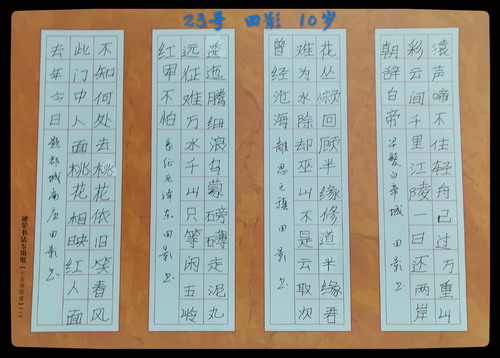 23号 田影 10岁
去年今日
题都城南庄 田影书
此门中人面桃花相映红人面
不知何处去桃花依旧笑春风
红军不怕
长征毛泽东 田影书
远征难万水千山只等闲五岭
逶迤腾细浪乌蒙磅礴走泥丸
曾经沧海
離思元稹 田影书
难为水除却巫山不是云取次
花丛懒回顾半缘修道半缘君
朝辞白帝
早發白帝城 田影书
彩云间千里江陵一日还两岸
猿声啼不住轻舟已过万重山
硬笔书法专用纸